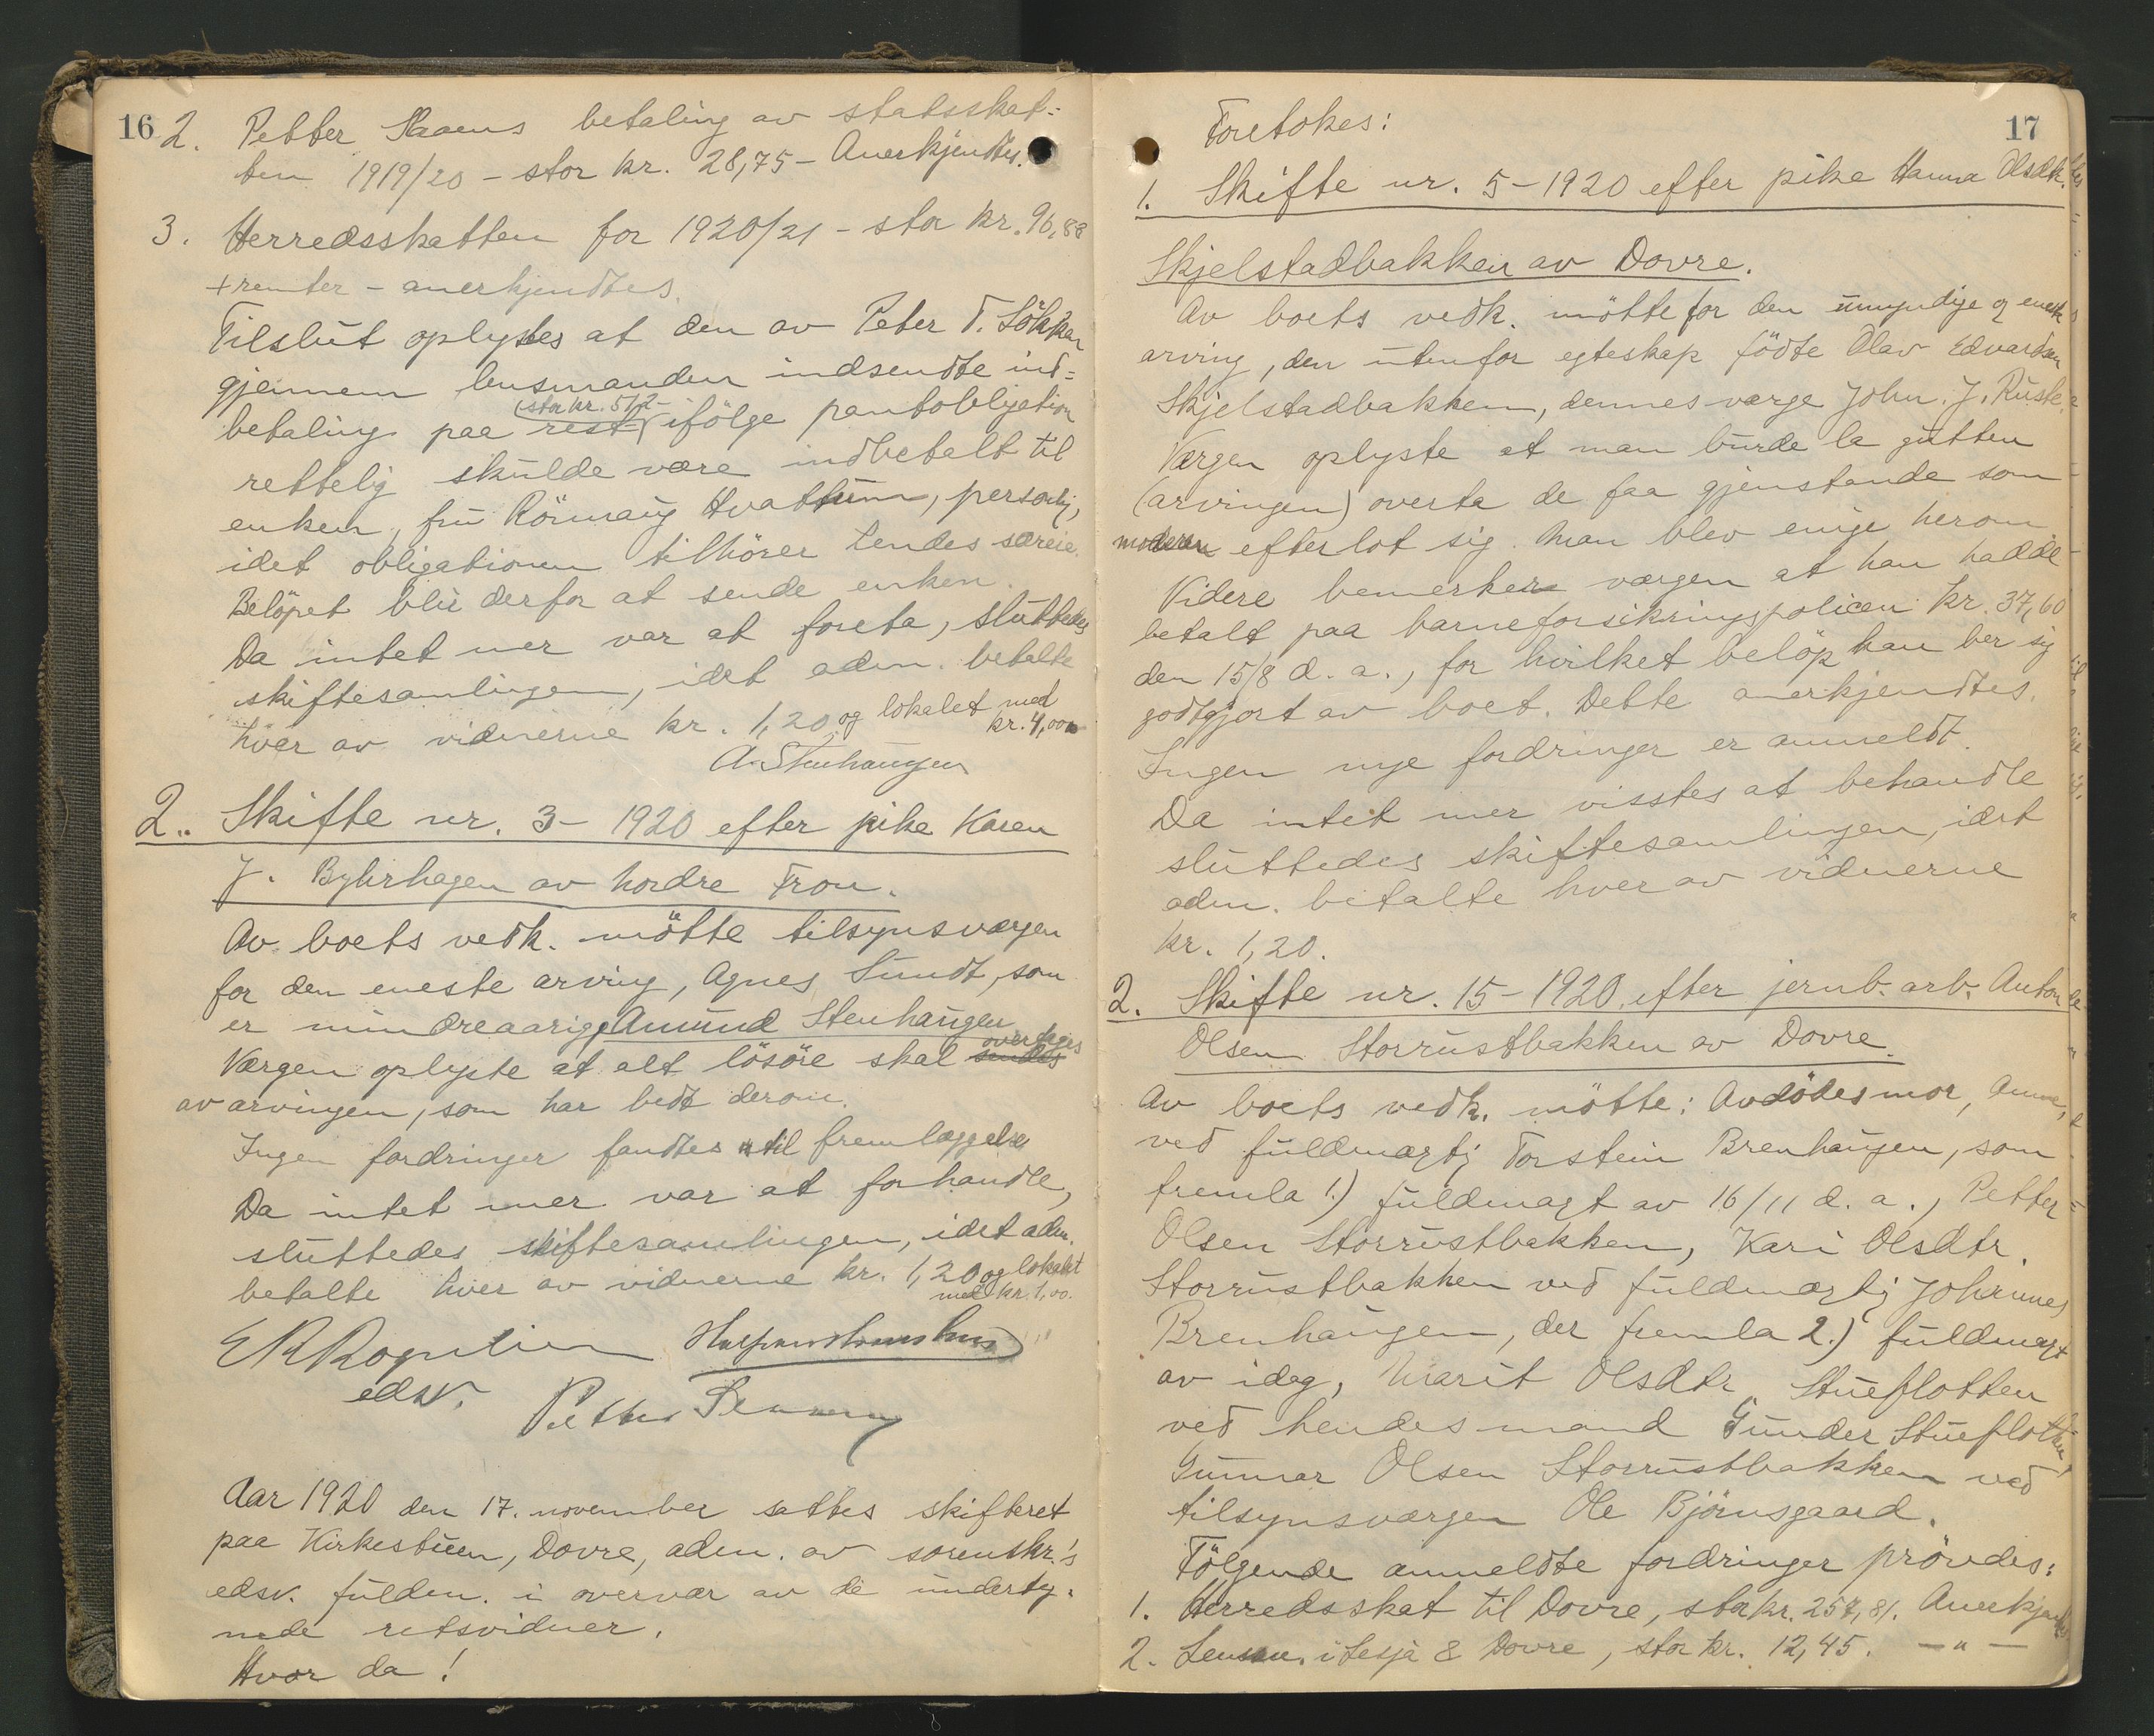 16
2. Petter Staaens betaling av statsskat=
ten 1919/20 - stor kr. 28,75 - Anerkjendtes.
3. Herredsskatten for 1920/21 - stor kr. 96,88
+ renter - anerkjendtes.
Tilslut oplystes at den av Peter T. Lökken
gjennem lensmanden indsendte ind=
(stor kr. 512-
betaling paa rest ifölge pantobligation
rettelig skulde være indbetalt til
enken, fru Rönnaug Hvattum, personlig,
idet obligationen tilhörer hendes særeie.
Belöpet blir derfor at sende enken.
Da intet mer var at foreta, sluttedes
skiftesamlingen, idet adm. betalte
hver av vidnerne kr. 1,20 og lokalet med
kr. 4,00
A. Stenhaugen
2. Skifte nr. 3 - 1920 efter pike Karen
J. Byhrhagen av Nordre Fron.
Av boets vedk. mötte tilsynsværgen
for den eneste arving, Agnes Sundt, som
er mindreaarig, Amund Stenhaugen
Værgen oplyste at alt lösöre skal sendes overtages
av arvingen, som har bedt derom.
Ingen fordringer fandtes til fremlæggelse
Da intet mer var at forhandle,
sluttedes skiftesamlingen, idet adm.
betalte hver av vidnerne kr. 1,20 og lokalet
med kr. 1,00.
edsv.
Aar 1920 den 17. november sattes skifteret
paa Kirkestuen, Dovre, adm. av sorenskr.'s
edsv. fuldm. i overvær av de underteg-
nede retsvidner.
Hvor da!
17
Foretokes:
1. Skifte nr. 5 - 1920 efter pike Hanna Olsdtr.
Skjelstadbakken av Dovre.
Av boets vedk. mötte for den umyndige og eneste
arving, den utenfor egteskap födte Olav Edvardsen
Skjelstadbakken, dennes værge John. J. Rusten.
Værgen oplyste at man burde la gutten
(arvingen) overta de faa gjenstande som
moderen efterlot sig. Man blev enige herom
Videre bemerker værgen at han hadde
betalt paa barneforsikringspolicen kr. 37,60
den 15/8 d. a., for hvilket belöp han ber sig
godtgjort av boet. Dette anerkjendtes.
Ingen nye fordringer er anmeldt.
Da intet mer visstes at behandle
sluttedes skiftesamlingen, idet
adm. betalte hver av vidnerne
kr. 1,20.
2. Skifte nr. 15 - 1920 efter jernb. arb. Anton
Olsen Storrustbakken av Dovre.
Av boets vedk. mötte: Avdödes mor, Anne,
ved fuldmægtig Torstein Brenhaugen, som
fremla 1.) fuldmagt av 16/11 d. a., Petter
Olsen Storrustbakken, Kari Olsdtr.
Storrustbakken ved fuldmægtig Johannes
Brenhaugen, der fremla 2.) fuldmagt
av idag, Marit Olsdtr. Stueflotten
ved hendes mand Gunder Stueflotten,
Gunnar Olsen Storrustbakken ved
tilsynsværgen Ole Björnsgaard.
Fölgende anmeldte fordringer prövdes:
1. Herredsskat til Dovre, stor kr. 257,81. Anerkjendtes
2. Lensm. i Lesja & Dovre, stor kr. 12,45. - " -